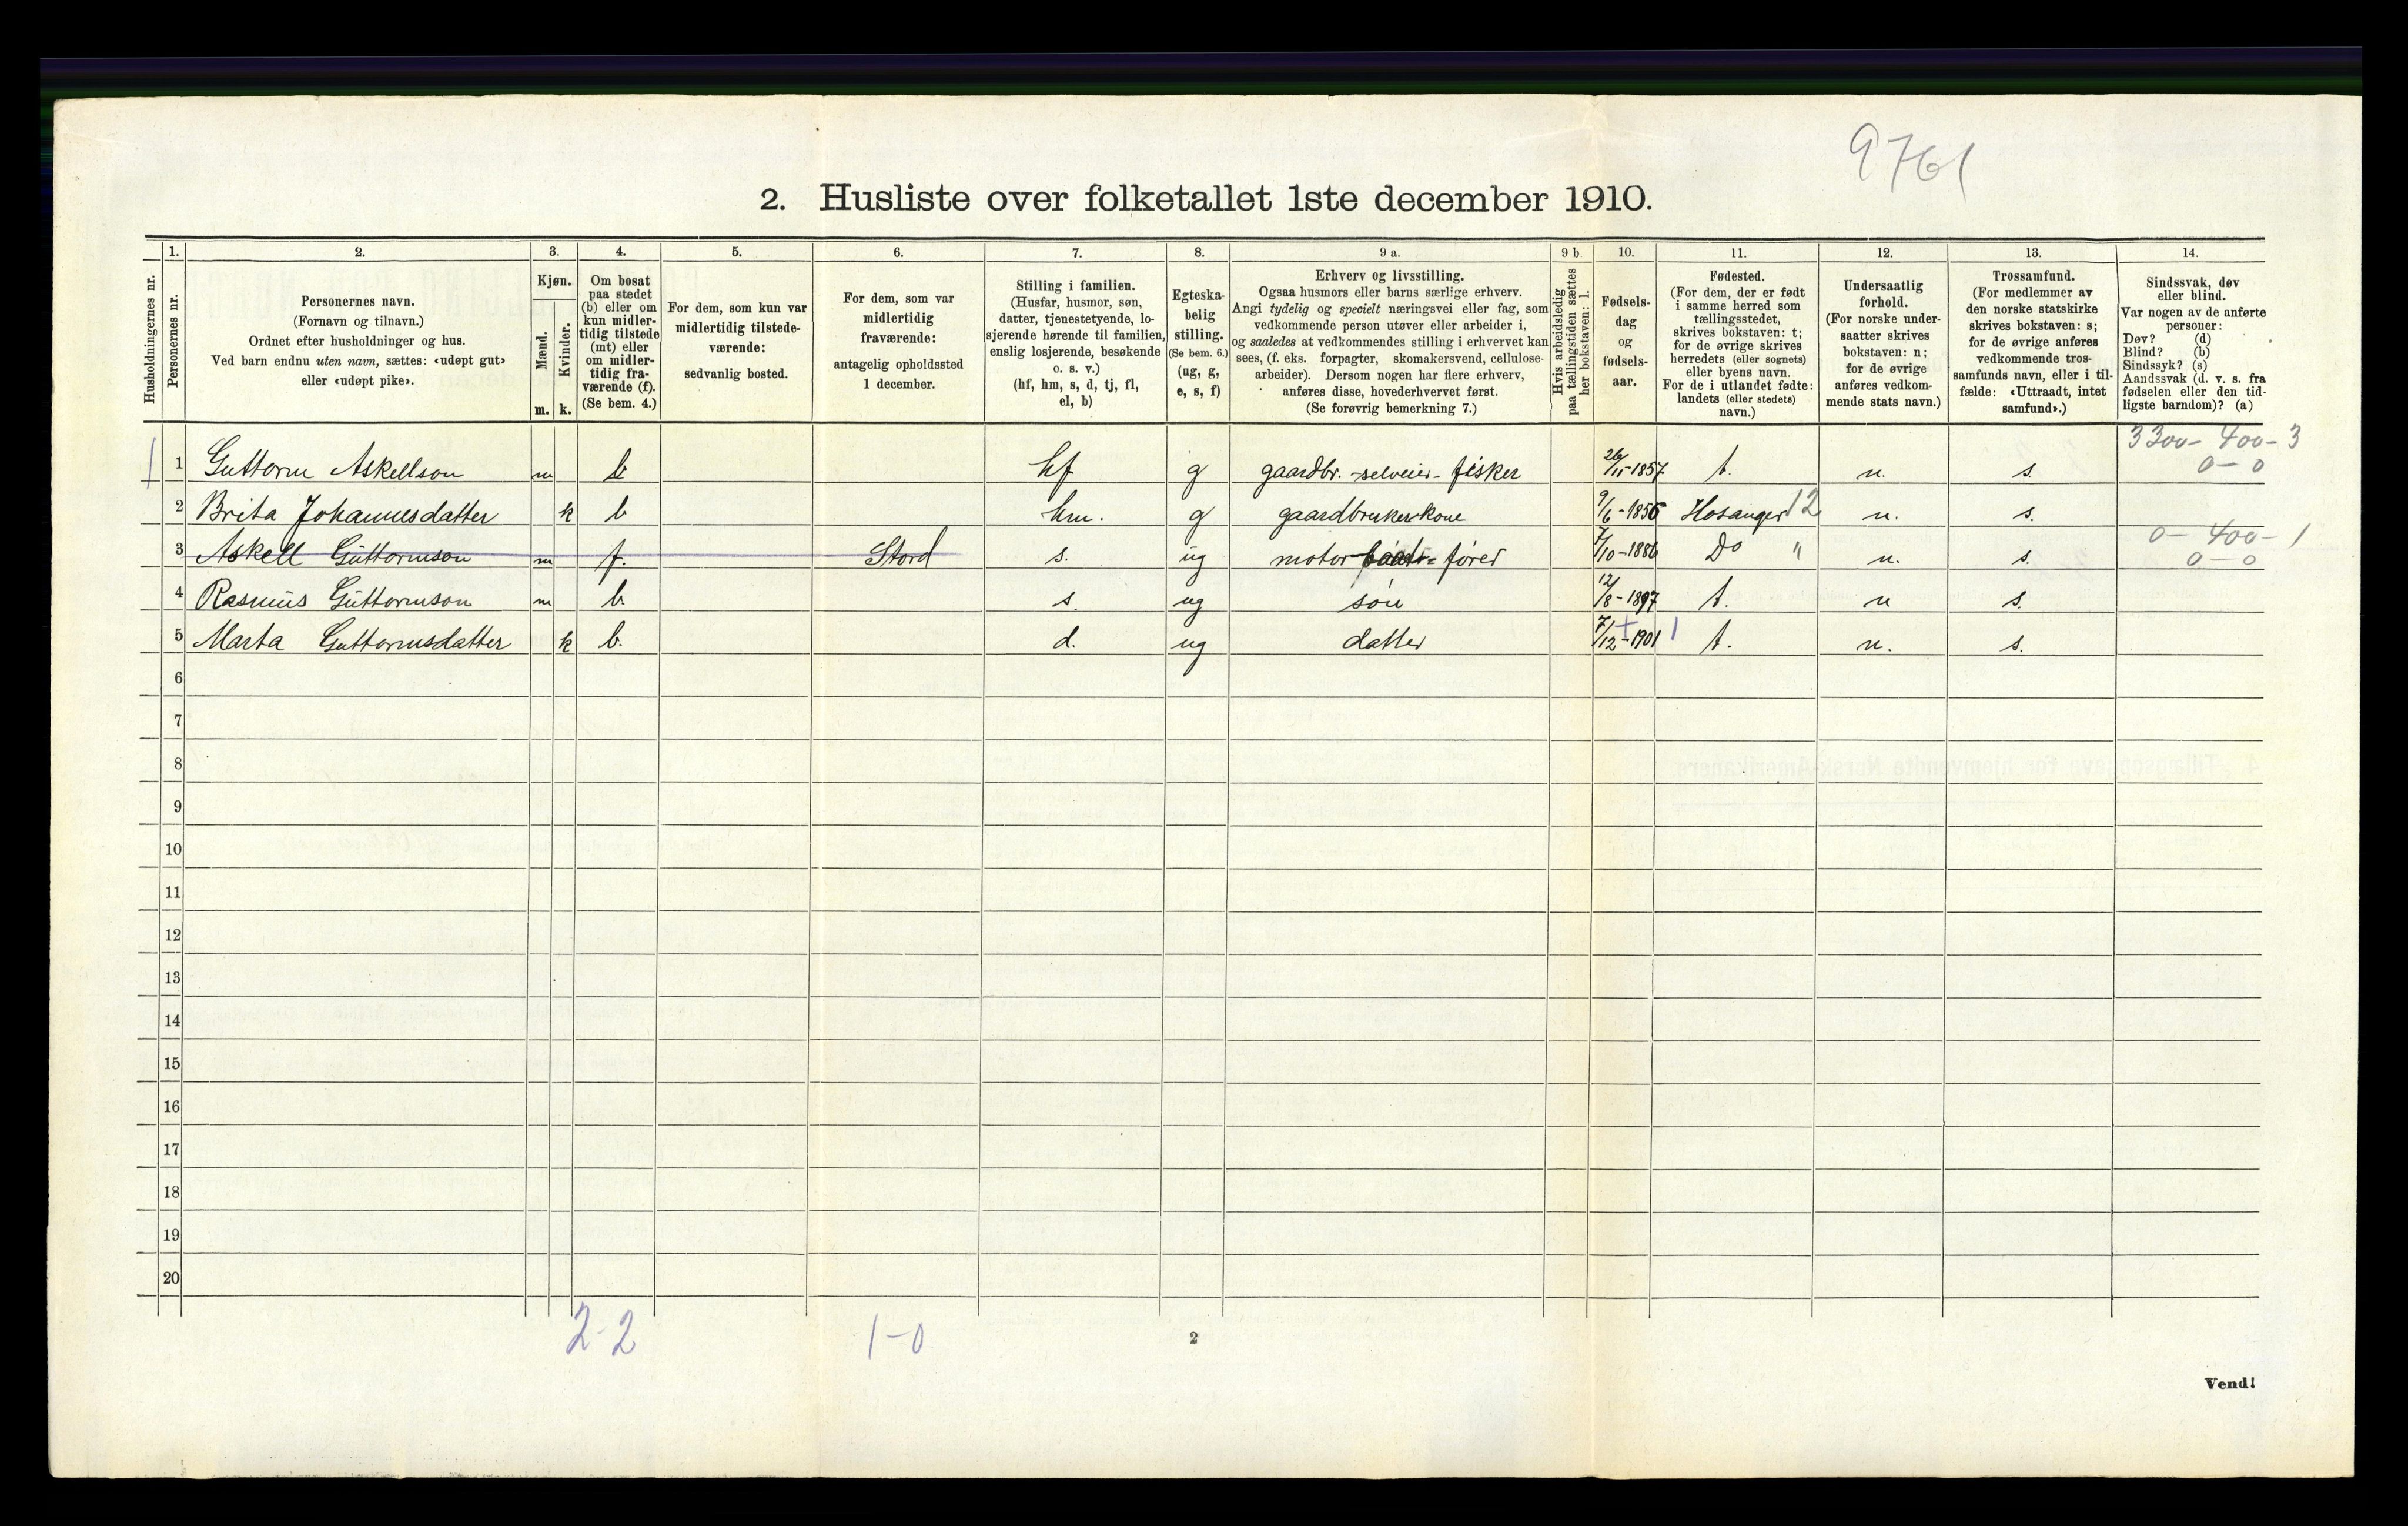 9761
2. Husliste over folketallet 1ste december 1910.
Husholdningernes nr.
1.
Personernes nr.
2.
Personernes navn.
(Fornavn og tilnavn.)
Ordnet efter husholdninger og hus.
Ved barn endnu uten navn, sættes: «udøpt gut»
eller «udøpt pike».
3.
Kjøn.
Mænd.
Kvinder.
m. k.
4.
Om bosat
paa stedet
(b) eller om
kun midler-
tidig tilstede
(mt) eller
om midler-
tidig fra-
værende (f).
(Se bem. 4.)
5.
For dem, som kun var
midlertidig tilstede-
værende:
sedvanlig bosted.
6.
For dem, som var
midlertidig
fraværende:
antagelig opholdssted
1 december.
7.
Stilling i familien.
(Husfar, husmor, søn,
datter, tjenestetyende, lo-
sjerende hørende til familien,
enslig losjerende, besøkende
o. s. v.)
(hf, hm, s, d, tj, fl,
el, b)
8.
Egteska-
belig
stilling.
(Se bem. 6.)
(ug, g,
e, s, f)
9 a.
Erhverv og livsstilling.
Ogsaa husmors eller barns særlige erhverv.
Angi tydelig og specielt næringsvei eller fag, som
vedkommende person utøver eller arbeider i,
og saaledes at vedkommendes stilling i erhvervet kan
sees, (f. eks. forpagter, skomakersvend, cellulose-
arbeider). Dersom nogen har flere erhverv,
anføres disse, hovederhvervet først.
(Se forøvrig bemerkning 7.)
9 b.
Hvis arbeidsledig
paa tællingstiden sættes
her bokstaven: l.
10.
Fødsels-
dag
og
fødsels-
aar.
11.
Fødested.
(For dem, der er født
i samme herred som
tællingsstedet,
skrives bokstaven: t;
for de øvrige skrives
herredets (eller sognets)
eller byens navn.
For de i utlandet fødte:
landets (eller stedets)
navn.)
12.
Undersaatlig
forhold.
(For norske under-
saatter skrives
bokstaven: n;
for de øvrige
anføres vedkom-
mende stats navn.)
13.
Trossamfund.
(For medlemmer av
den norske statskirke
skrives bokstaven: s;
for de øvrige anføres
vedkommende tros-
samfunds navn, eller i til-
fælde: «Uttraadt, intet
samfund».)
14.
Sindssvak, døv
eller blind.
Var nogen av de anførte
personer:
Døv? (d)
Blind? (b)
Sindssyk? (s)
Aandssvak (d. v. s. fra
fødselen eller den tid-
ligste barndom)? (a)
3300- 400-3
1 1 Guttorm Askellson m b hf g gaardbr. -selveier- fisker 26/11-1857 t. n. s. 0-0
2 Brita Johannesdatter k b hm. g gaardbrukerkone 9/6-1856 Hosanger 12 n. s.
0- 400-1
3 Askell Guttormson m f. Stord s. ug motor baat= fører 7/10-1886 Do " n. s. 0-0
4 Rasmus Guttormson m b. s. ug søn 12/8-1897 t. n s.
5 Marta Guttormsdatter k b. d. ug datter 7/12-1901 1 t. n. s.
6
7
8
9
10
11
12
13
14
15
16
17
18
19
20
2-2 1-0
2
Vend!